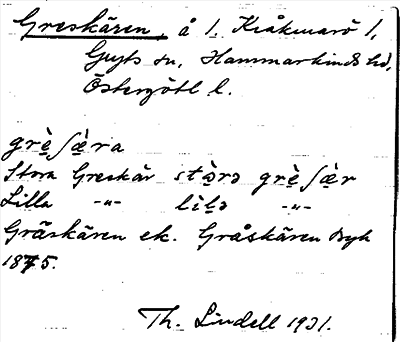 Greskären, å 1, Kråkmarö 1,
Gryts sn, Hammarkinds hd,
Östergötl l.
grè̱ʃæ̱̀ra
Stora Greskär stɔ̀rə grè̱ʃæ̱̀r
Lilla -"- lìlə -"-
Gräskären ek. Gråskären
1875.
Th. Lindell 1931.